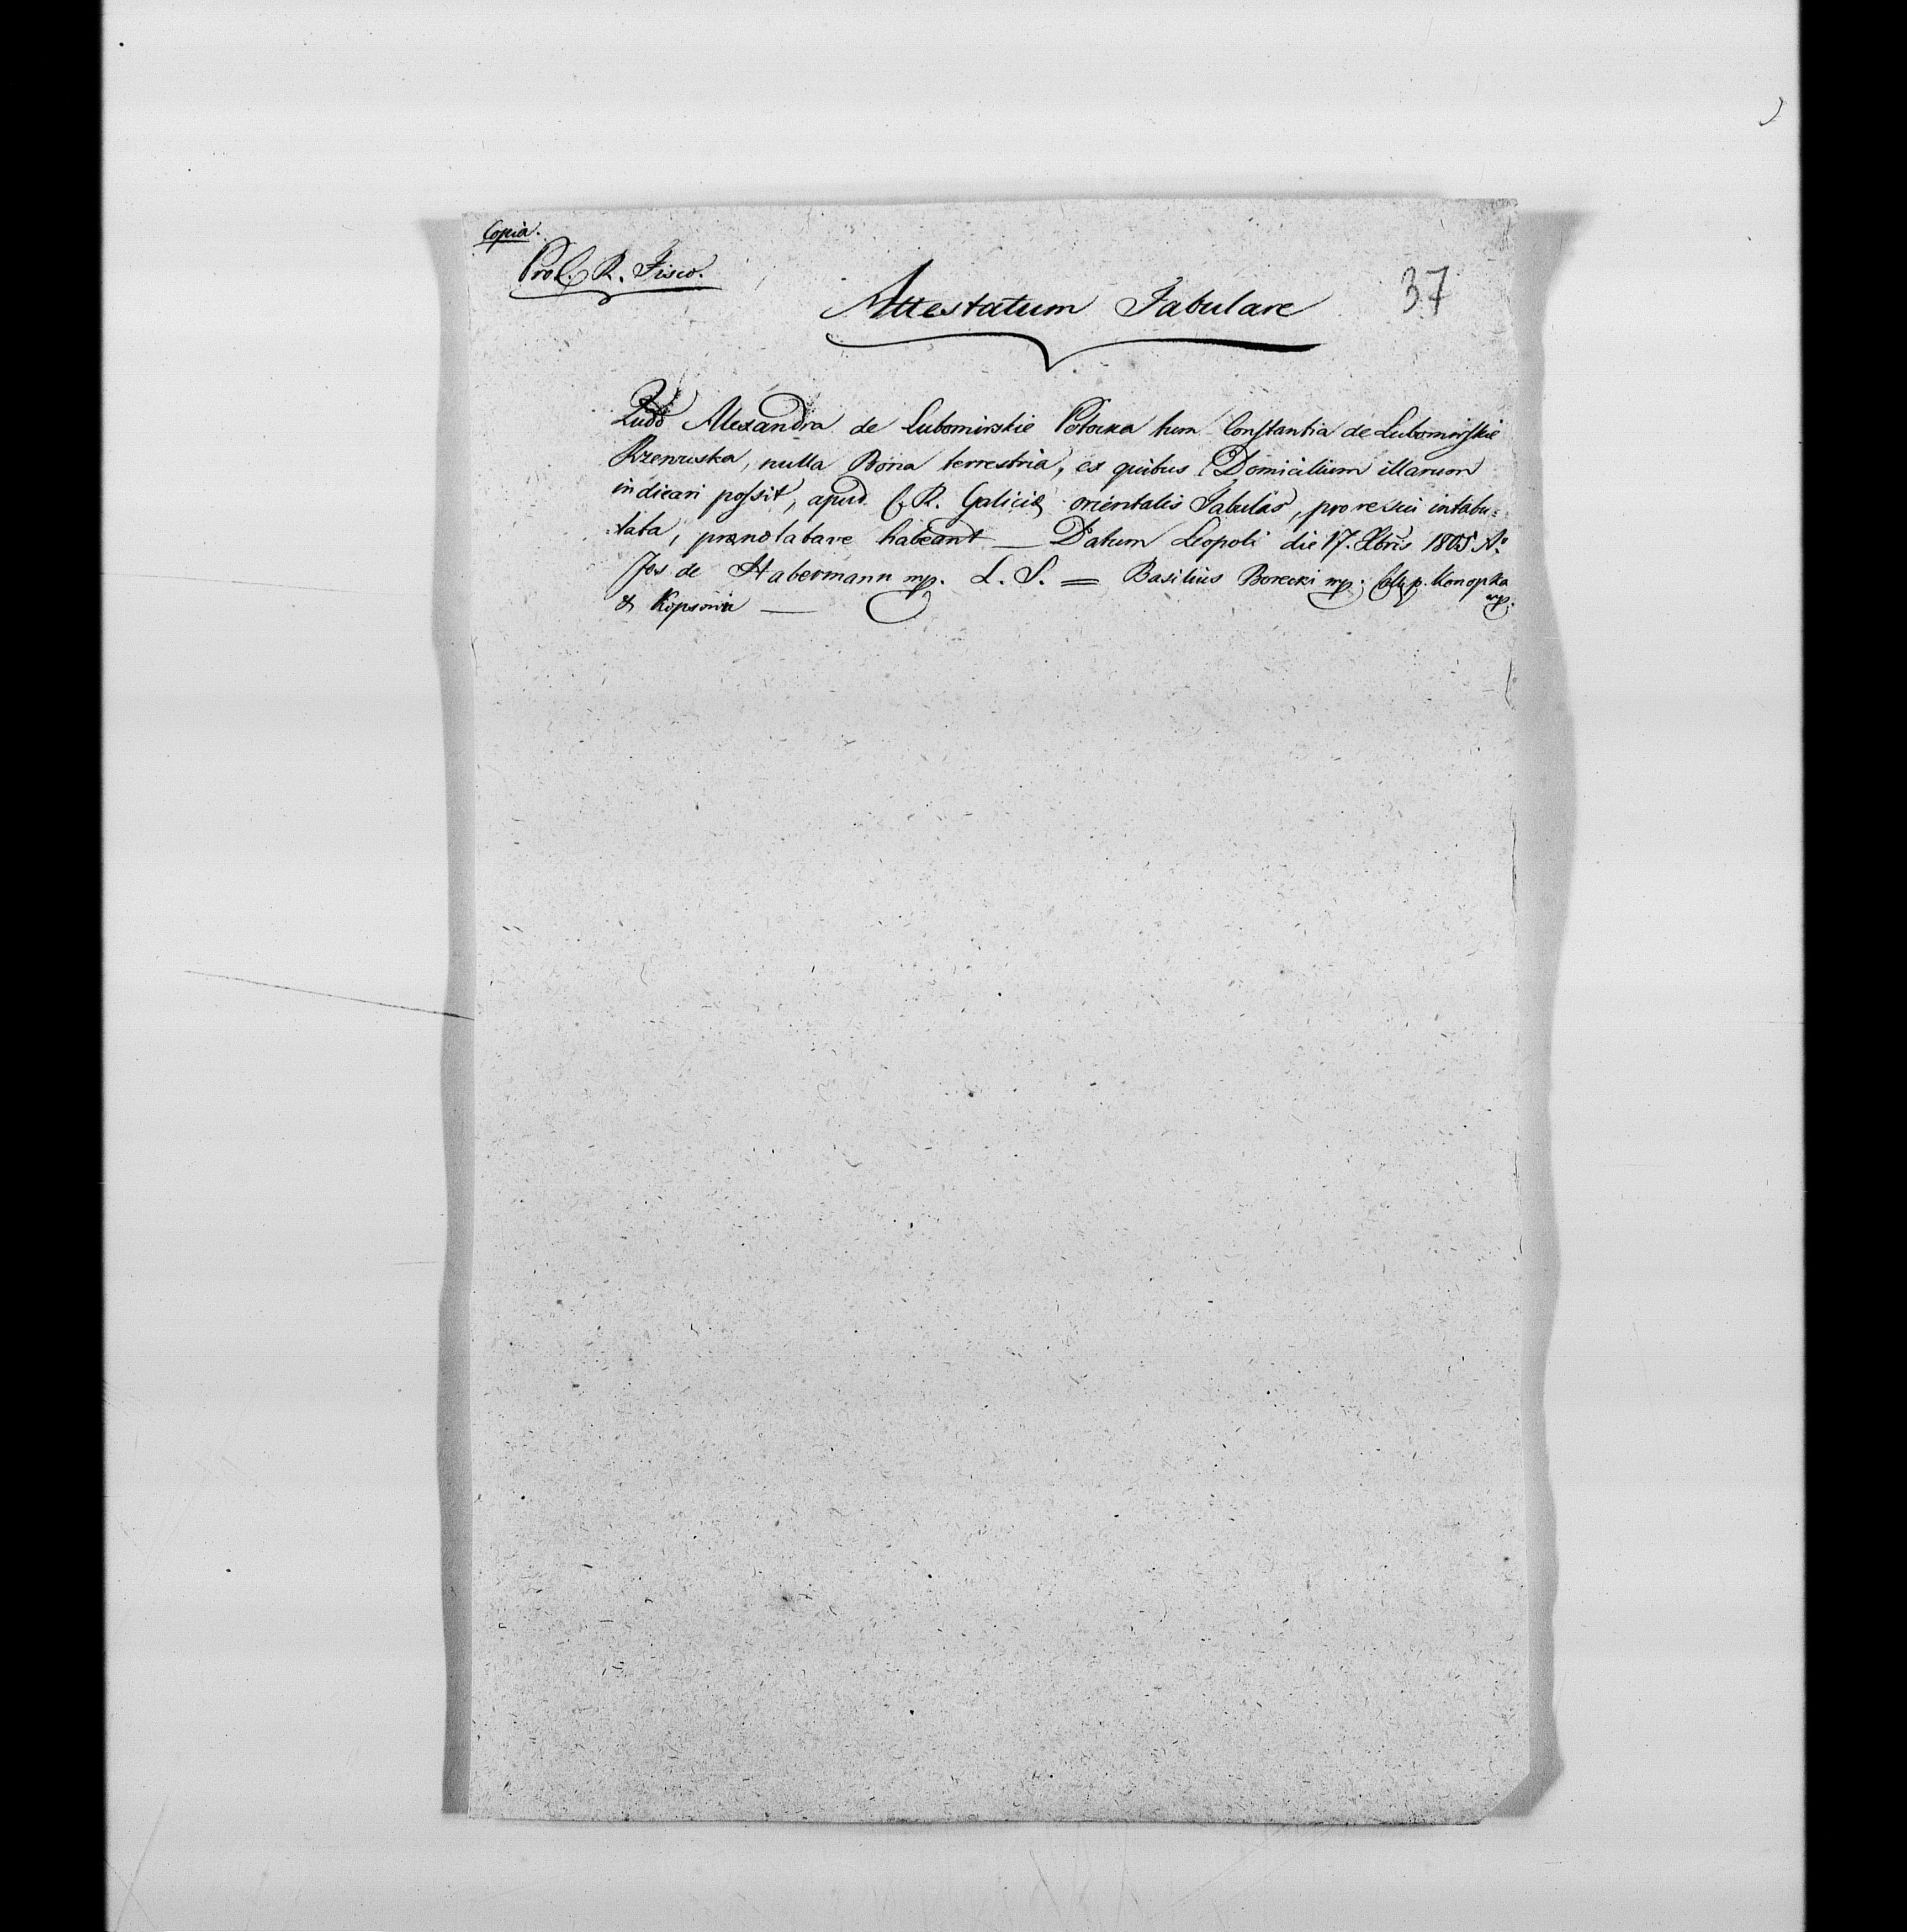 Copia.
Pro C. R. Fisco.
37
Attestatum Tabulare
Quod Alexandra de Lubomirskie Potocka tum Constantia de Lubomirskie
Rzewuska, nulla Bona terrestria, ex quibus Domicilium illarum
indicari possit, apud C. R. Galiciæ orientalis Tabulas, pro re sui intabu:
:lata, prænotatave habeant — Datum Leopoli die 17. Xbris 1805 Aº
Jos de Habermann mp. L. S. = Basilius Borecki mp. Konopka
mp.
&